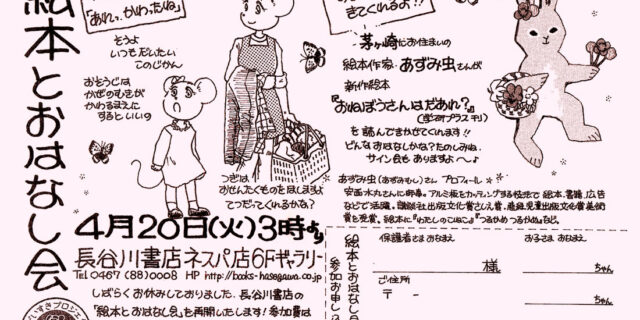 絵本とおはなし会
「あれっ、かわったね」
そうよ
いつもだいたい
このじかん
おそうじは
かぜのむきが
かわるまえに
するといいの
つぎは
おせんたくものをほしますよ
てつだってくれるかな?
きてくれるよ!!
茅ヶ崎にお住まいの
絵本作家・あずみ虫さんが
新作絵本
『おねぼうさんはだあれ?』
(学研プラス刊)
を読んできかせてくれます!!
どんなおはなしかな?たのしみね。
サイン会もありますよ〜♪
あずみ虫(あずみむし)さん プロフィール
安西水丸さんに師事。アルミ板をカッティングする技法で絵本、書籍、広告
などでご活躍。講談社出版文化賞さしえ賞、産経児童出版文化賞美術
賞を受賞。絵本に『わたしのこねこ』『つるかめつるかめ』など。
4月20日(火)3時より
長谷川書店ネスパ店6Fギャラリー
Tel 0467(88)0008 HP http://books-hasegawa.co.jp
しばらくお休みしておりました、長谷川書店の
「絵本とおはなし会」を再開いたします!参加費は
絵本とおはなし会
参加お申し込
保護者さまおなまえ
様
お子さまおなまえ
ちゃん
ご住所
〒 -
ちゃん